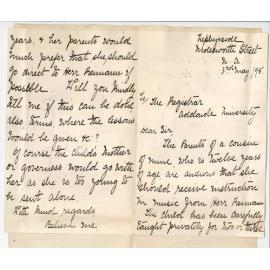 Molesworth Street
N. A.
3rd May /98
To The Registrar
Adelaide University
Dear Sir,
The Parents of a cousin
of mine who is twelve years
of age are anxious that she
should receive instruction
in music from Herr Reimann
This child has been carefully
taught privately for two or three
years, & her parents would
much prefer that she should
go direct to Herr Reimann if
possible. Will you kindly
tell me if this can be done
also terms, where the lessons
would be given &c?
Of course the child's Mother
or governess would go with
her as she is too young to
be sent alone.
With kind regards
Believe me